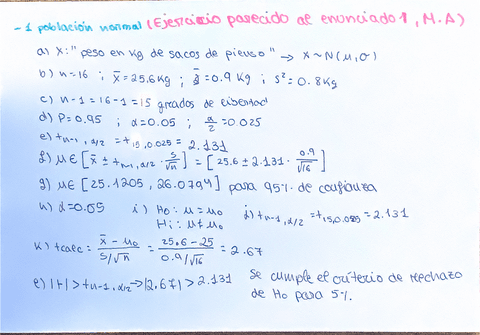 -1 población normal (Ejercicio parecido al enunciado 1, M.A)
a) X: "peso en Kg de sacos de pienso" → X ~ N(μ,σ)
b) n=16 ; x̄=25.6 Kg ; ŝ=0.9 Kg ; s²=0.8 Kg
c) n-1=16-1=15 grados de libertad
d) P=0.95 ; α=0.05 ; α/2=0.025
e) t n-1, α/2 = t 15, 0.025 = 2.131
f) μ ∈ [x̄ ± t n-1, α/2 · s/√n] = [25.6 ± 2.131 · 0.9/√16]
g) μ ∈ [25.1205, 26.0794] para 95% de confianza
h) α=0.05 i) H0: μ = μ0 j) t n-1, α/2 = t 15, 0.025 = 2.131
H1: μ ≠ μ0
k) tcalc = (x̄ - μ0)/(s/√n) = (25.6-25)/(0.9/√16) = 2.67
l) |t| > t n-1, α/2 → |2.67| > 2.131 Se cumple el criterio de rechazo
de H0 para 5%.